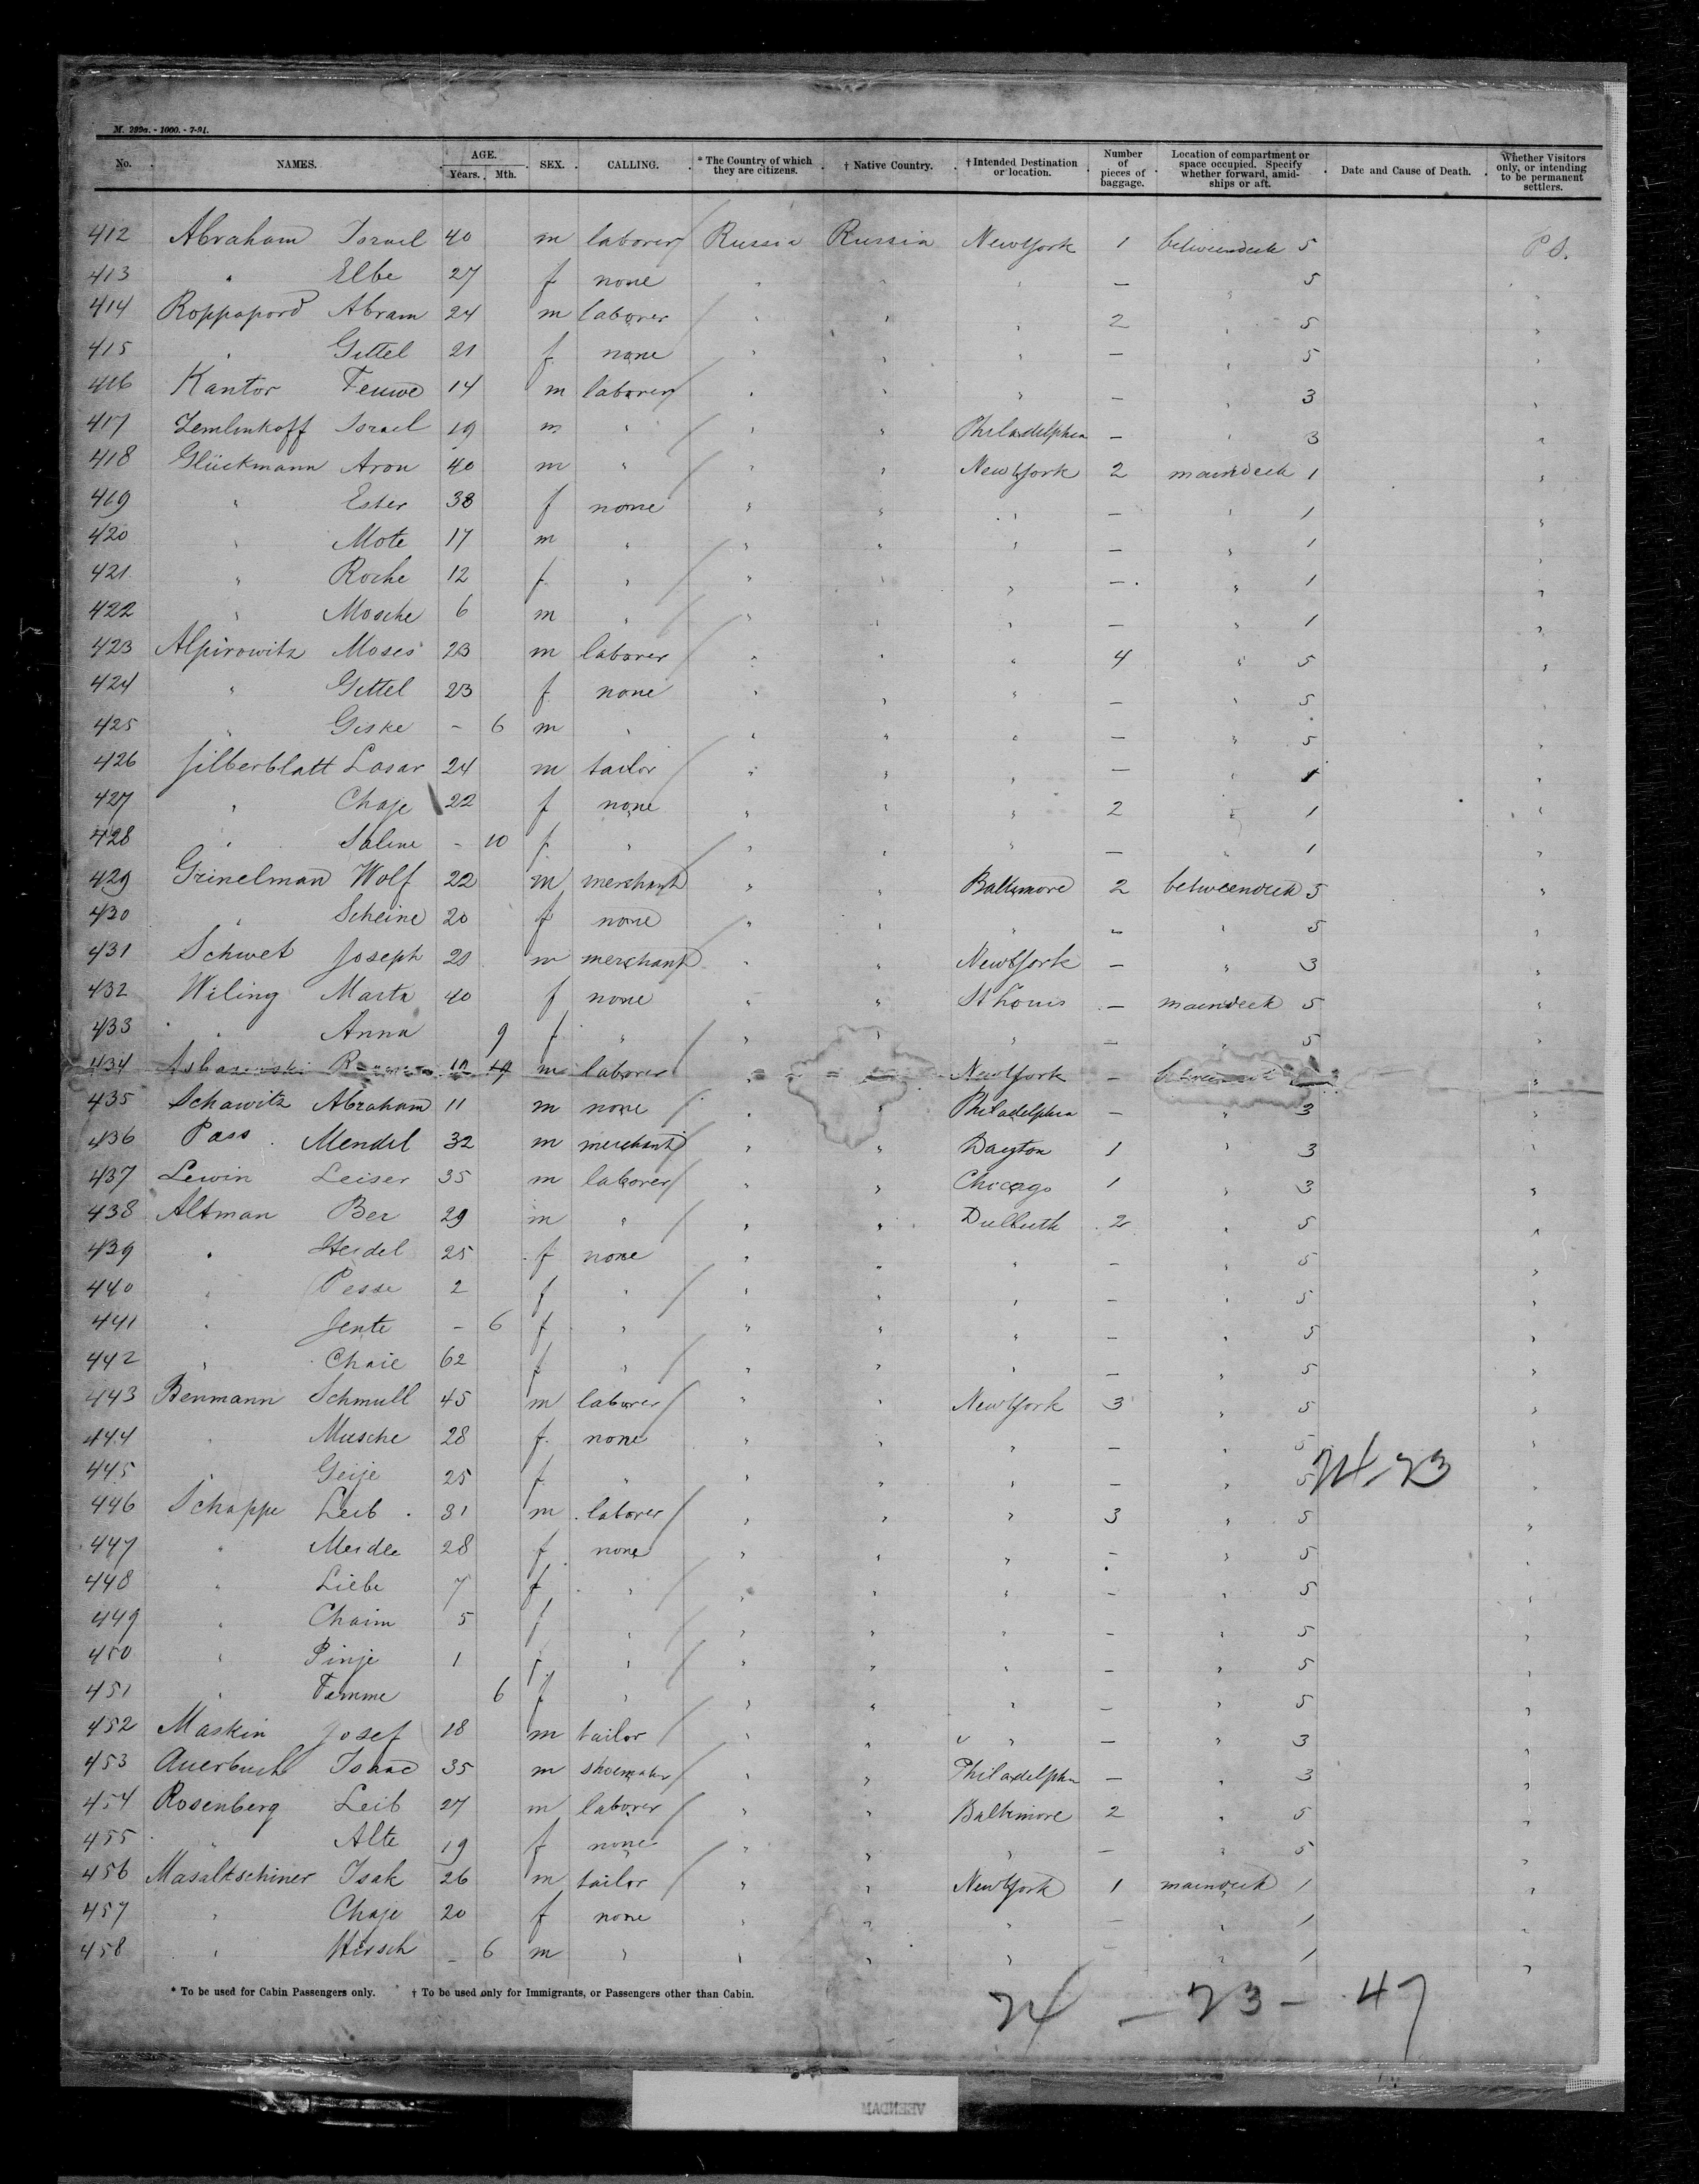 M. 299a. - 1000. - 7-91.
No. NAMES. AGE. Years. Mth. SEX. CALLING. * The Country of which they are citizens. † Native Country. † Intended Destination or location. Number of pieces of baggage. Location of compartment or space occupied. Specify whether forward, amidships or aft. Date and Cause of Death. Whether Visitors only, or intending to be permanent settlers.
412 Abraham Israel 40 m laborer Russia Russia New York 1 betweendeck 5 P S.
413 " Elbe 27 f none " " " — " 5 "
414 Roppapord Abram 24 m laborer " " " 2 " 5 "
415 " Gittel 21 f none " " " — " 5 "
416 Kantor Teuwe 14 m laborer " " " — " 3 "
417 Zemlinkoff Israel 19 m " " " Philadelphia — " 3 "
418 Glückmann Aron 40 m " " " New York 2 maindeck 1 "
419 " Ester 38 f none " " " — " 1 "
420 " Mote 17 m " " " " — " 1 "
421 " Roche 12 f " " " " — " 1 "
422 " Mosche 6 m " " " " — " 1 "
423 Alpirowitz Moses 23 m laborer " " " 4 " 5 "
424 " Gittel 23 f none " " " — " 5 "
425 " Giske - 6 m " " " " — " 5 "
426 Silberblatt Lasar 24 m tailor " " " — " 1 "
427 " Chaje 22 f none " " " 2 " 1 "
428 " Saline - 10 f " " " " — " 1 "
429 Grinelman Wolf 22 m merchant " " Baltimore 2 betweendeck 5 "
430 " Scheine 20 f none " " " — " 5 "
431 Schwet Joseph 21 m merchant " " New York — " 3 "
432 Wiling Marta 40 f none " " St Louis — maindeck 5 "
433 " Anna 9 f " " " " — " 5 "
434 m laborer New York — "
435 Schawitz Abraham 11 m none " " Philadelphia — " 3 "
436 Pass Mendel 32 m merchant " " Dayton 1 " 3 "
437 Lewin Leiser 35 m laborer " " Chicago 1 " 3 "
438 Altman Ber 29 m " " " Dulluth 2 " 5 "
439 " Heidel 25 f none " " " — " 5 "
440 " Pesse 2 f " " " " — " 5 "
441 " Jente - 6 f " " " " — " 5 "
442 " Chaie 62 f " " " " — " 5 "
443 Benmann Schmull 45 m laborer " " New York 3 " 5 "
444 " Musche 28 f none " " " — " 5 "
445 " Geije 25 f " " " " — " 5 "
446 Schappe Leib 31 m laborer " " " 3 " 5 "
447 " Meidle 28 f none " " " — " 5 "
448 " Liebe 7 f " " " " — " 5 "
449 " Chaim 5 f " " " " — " 5 "
450 " Pinje 1 f " " " " — " 5 "
451 " Famme 6 f " " " " — " 5 "
452 Maskin Josef 18 m tailor " " " — " 3 "
453 Auerbuch Isaac 35 m shoemaker " " Philadelphia — " 3 "
454 Rosenberg Leib 27 m laborer " " Baltimore 2 " 5 "
455 " Alte 19 f none " " " — " 5 "
456 Masaltschiner Isak 26 m tailor " " New York 1 maindeck 1 "
457 " Chaje 20 f none " " " — " 1 "
458 " Hirsch - 6 m " " " " — " 1 "
24-23
* To be used for Cabin Passengers only. † To be used only for Immigrants, or Passengers other than Cabin.
24 — 23 — 47